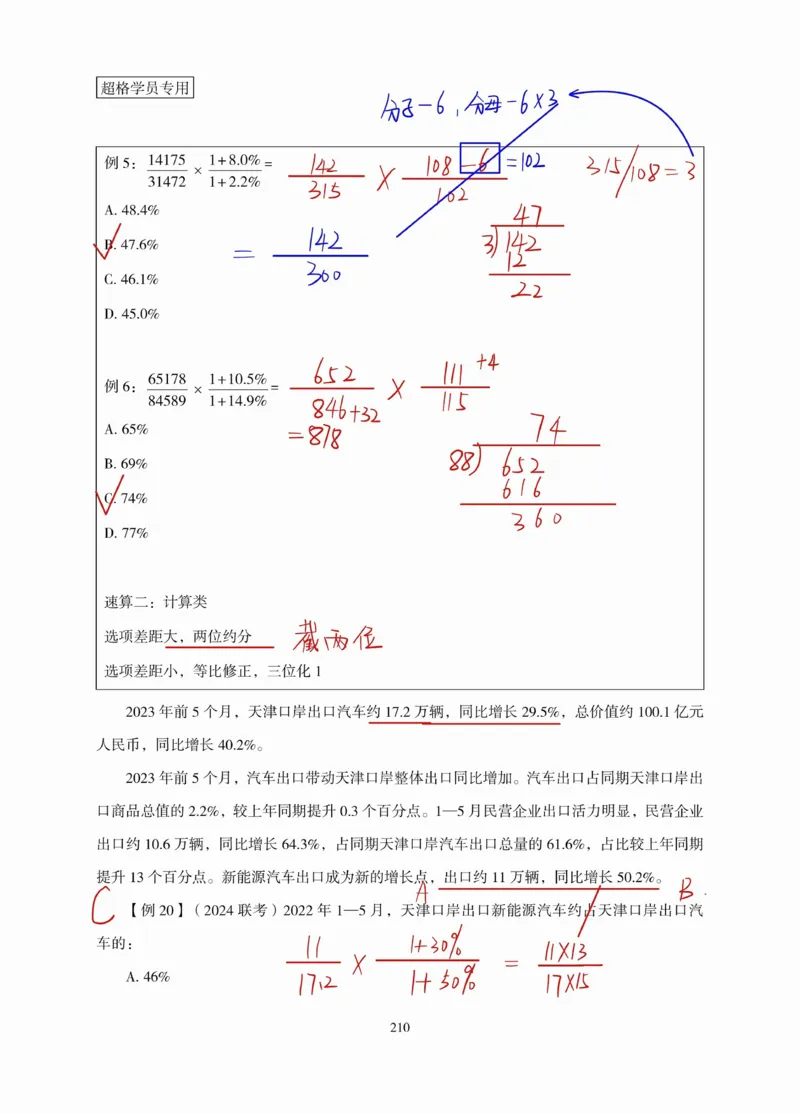 超格学员专用
分子-6，分母-6×3
例 5：14175/31472 × 1+8.0%/1+2.2% = 142/315 × 108-6/102 =102 315/108=3
A. 48.4%
47
B. 47.6%
= 142/300
3)142
12
C. 46.1%
22
D. 45.0%
例 6：65178/84589 × 1+10.5%/1+14.9% = 652/846+32 × 111+4/115
=878
A. 65%
74
B. 69%
88)652
616
C. 74%
360
D. 77%
速算二：计算类
选项差距大，两位约分 截两位
选项差距小，等比修正，三位化 1
2023 年前 5 个月，天津口岸出口汽车约 17.2 万辆，同比增长 29.5%，总价值约 100.1 亿元
人民币，同比增长 40.2%。
2023 年前 5 个月，汽车出口带动天津口岸整体出口同比增加。汽车出口占同期天津口岸出
口商品总值的 2.2%，较上年同期提升 0.3 个百分点。1—5 月民营企业出口活力明显，民营企业
出口约 10.6 万辆，同比增长 64.3%，占同期天津口岸汽车出口总量的 61.6%，占比较上年同期
提升 13 个百分点。新能源汽车出口成为新的增长点，出口约 11 万辆，同比增长 50.2%。
C A B
【例 20】（2024 联考）2022 年 1—5 月，天津口岸出口新能源汽车约占天津口岸出口汽
车的：
11/17.2 × 1+30%/1+50% = 11×13/17×15
A. 46%
210